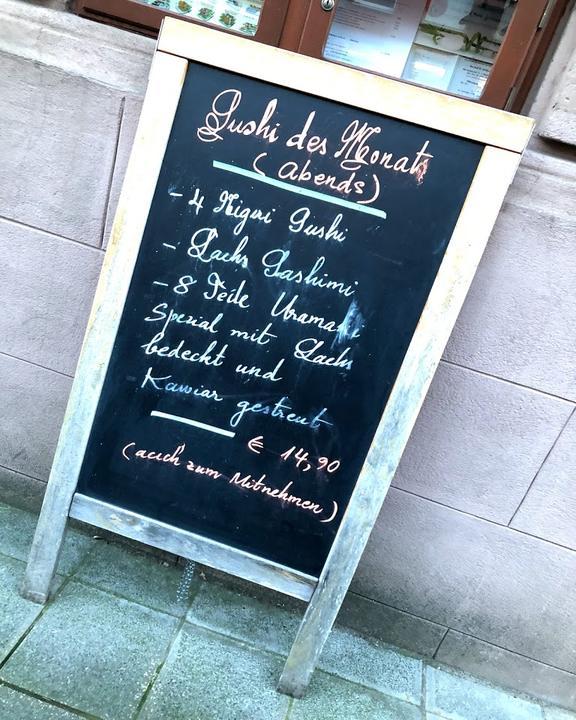 Sushi des Monats
(Abends)
- 4 Nigiri Sushi
- Lachs Sashimi
- 8 Teile Uramaki
Spezial mit Lachs
bedeckt und
Kawiar gestreut
€ 14,90
(auch zum Mitnehmen)